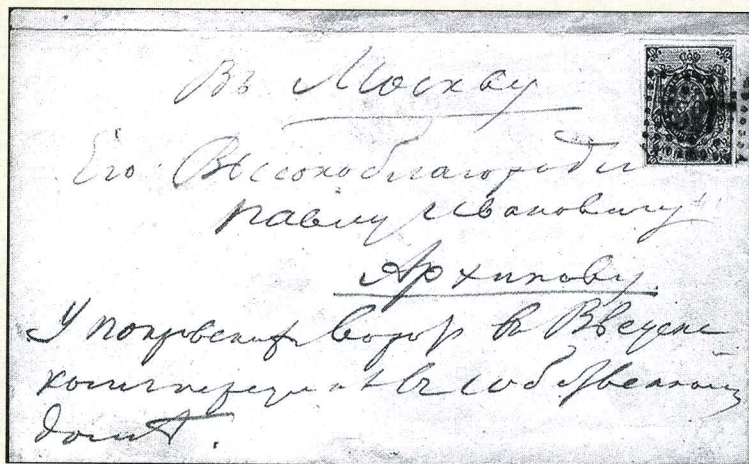 Въ Москву
Его Высокоблагородію
Павлу Ивановичу
Архипову
У покровскихъ воротъ въ Введенс
комъ переулкѣ въ собственномъ
домѣ.